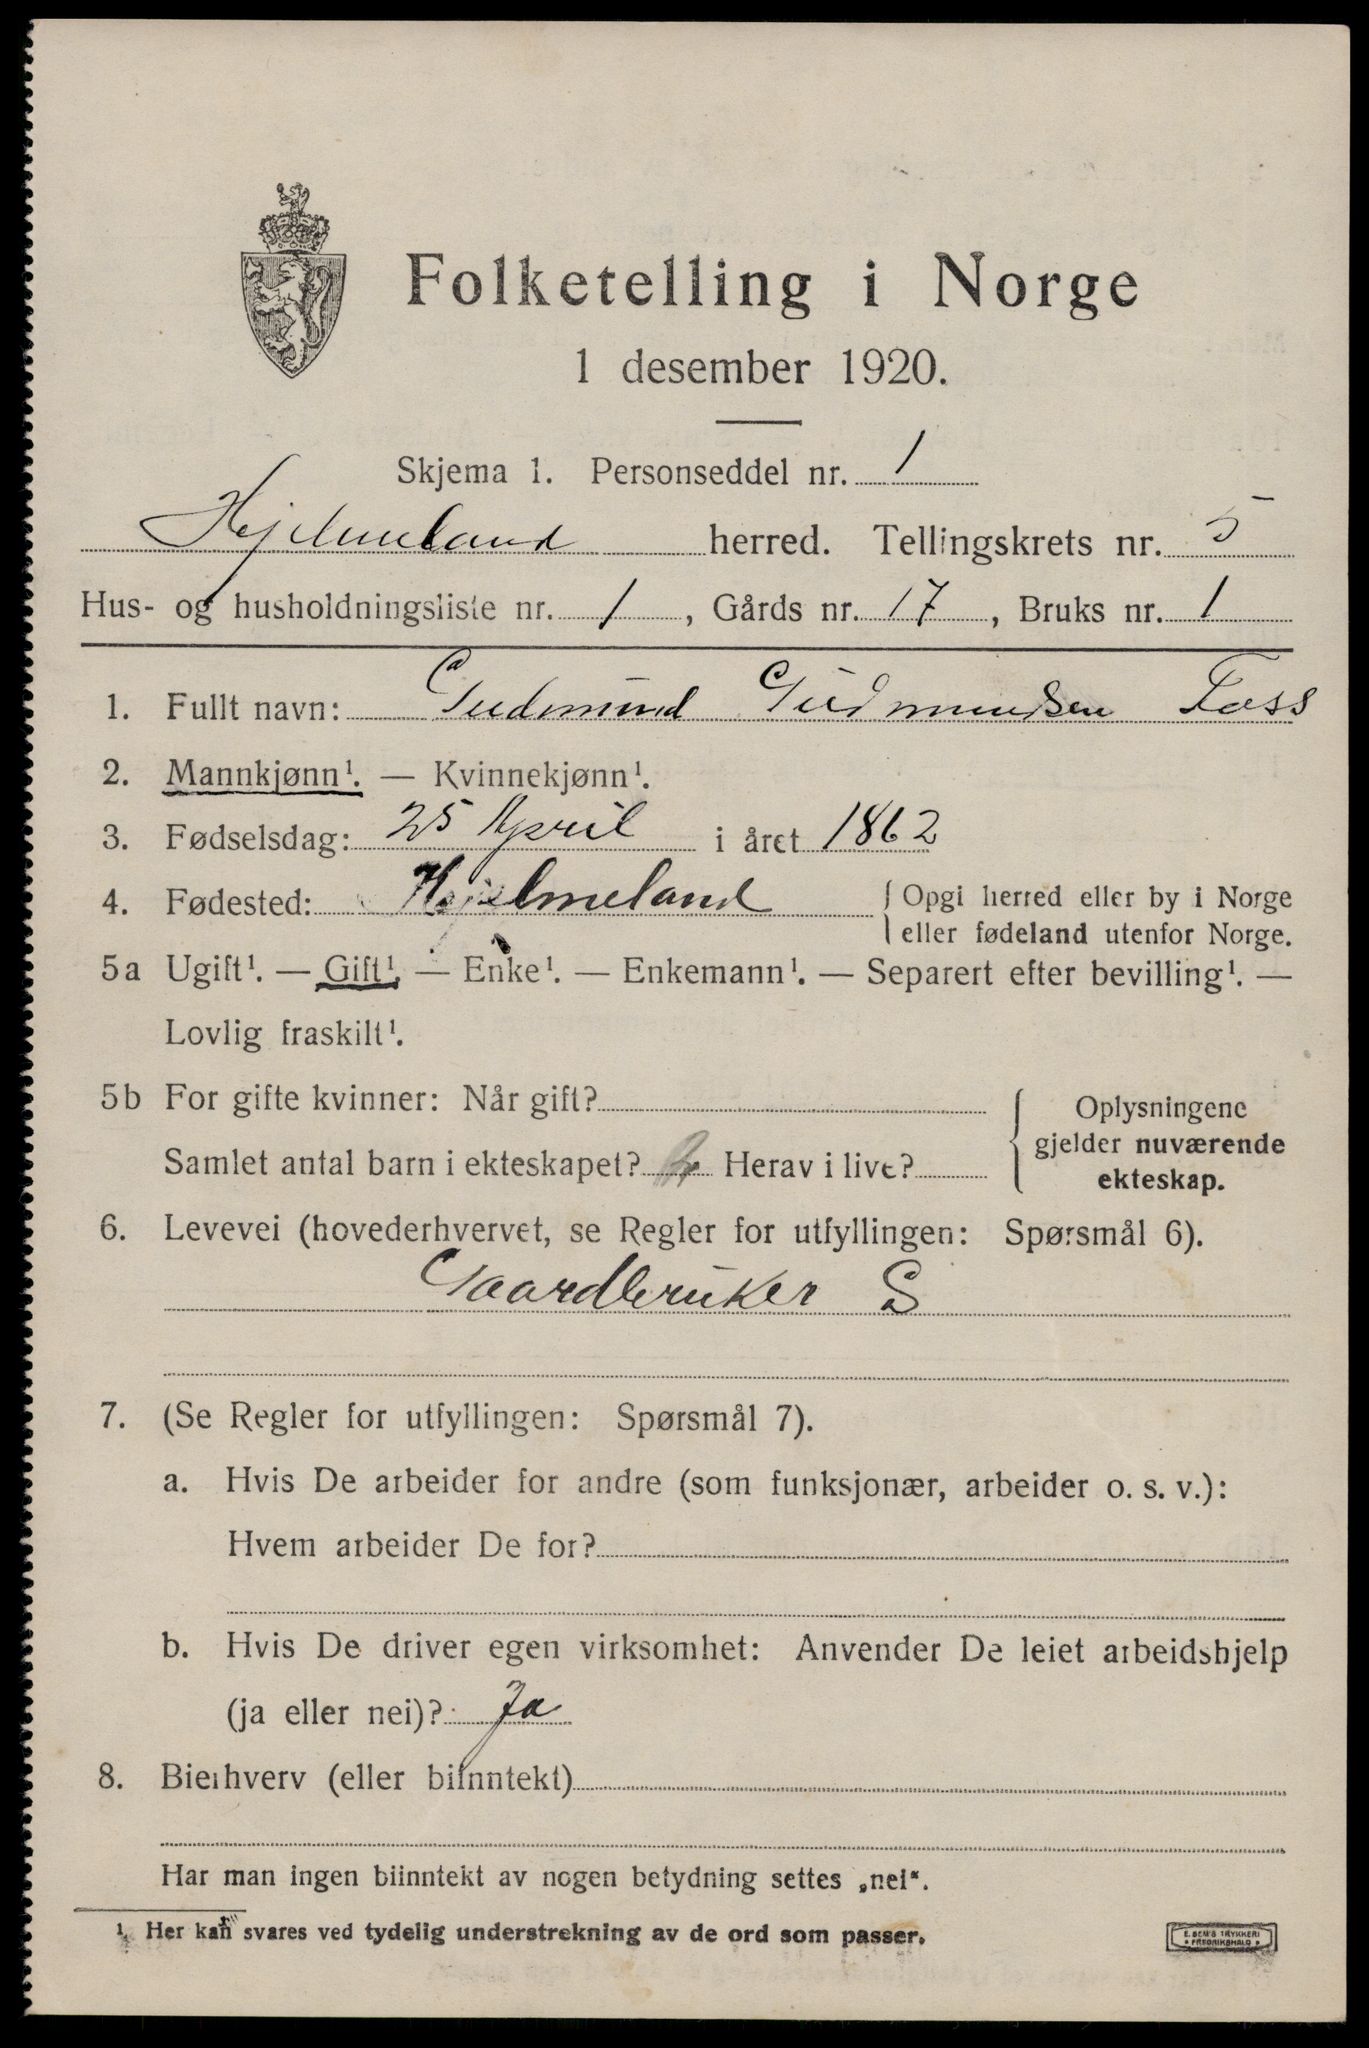 Folketelling i Norge
1 desember 1920.
Skjema 1. Personseddel nr. 1
Hjelmeland herred. Tellingskrets nr. 5
Hus- og husholdningsliste nr. 1, Gårds nr. 17, Bruks nr. 1
1. Fullt navn: Gudmund Gudmundsen Foss
2. Mannkjønn¹. — Kvinnekjønn¹.
3. Fødselsdag: 25 April i året 1862
4. Fødested: Hjelmeland { Opgi herred eller by i Norge
eller fødeland utenfor Norge.
5a Ugift¹. — Gift¹. — Enke¹. — Enkemann¹. — Separert efter bevilling¹. —
Lovlig fraskilt¹.
5b For gifte kvinner: Når gift?
Samlet antal barn i ekteskapet? Herav i live?
{ Oplysningene
gjelder nuværende
ekteskap.
6. Levevei (hovederhvervet, se Regler for utfyllingen: Spørsmål 6).
Gaardbruker S
7. (Se Regler for utfyllingen: Spørsmål 7).
a. Hvis De arbeider for andre (som funksjonær, arbeider o. s. v.):
Hvem arbeider De for?
b. Hvis De driver egen virksomhet: Anvender De leiet arbeidshjelp
(ja eller nei)? Ja
8. Bierhverv (eller biinntekt)
Har man ingen biinntekt av nogen betydning settes „nei“.
¹. Her kan svares ved tydelig understrekning av de ord som passer.
E. SEM'S TRYKKERI
• FREDRIKSHALD •